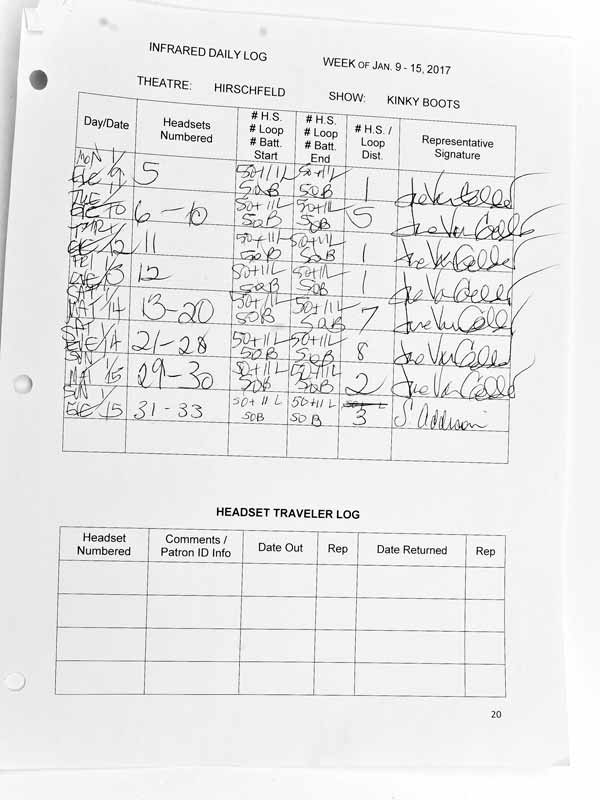 INFRARED DAILY LOG
WEEK OF JAN. 9 - 15, 2017
THEATRE: HIRSCHFELD SHOW: KINKY BOOTS
Day/Date Headsets Numbered # H.S. # Loop # Batt. Start # H.S. # Loop # Batt. End # H.S. / Loop Dist. Representative Signature
MON EVE 1/9 5 50+11L 50B 50+11L 50B 1
TUE EVE 1/10 6-10 50+11L 50B 50+11L 50B 5
EVE 1/12 11 50+11L 50B 50+11L 50B 1
FRI EVE 1/13 12 50+11L 50B 50+11L 50B 1
SAT MAT 1/14 13-20 50+11L 50B 50+11L 50B 7
SAT EVE 1/14 21-28 50+11L 50B 50+11L 50B 8
SUN MAT 1/15 29-30 50+11L 50B 50+11L 50B 2
SUN EVE 1/15 31-33 50+11L 50B 50+11L 50B 3 S. Addison
HEADSET TRAVELER LOG
Headset Numbered Comments / Patron ID Info Date Out Rep Date Returned Rep
20